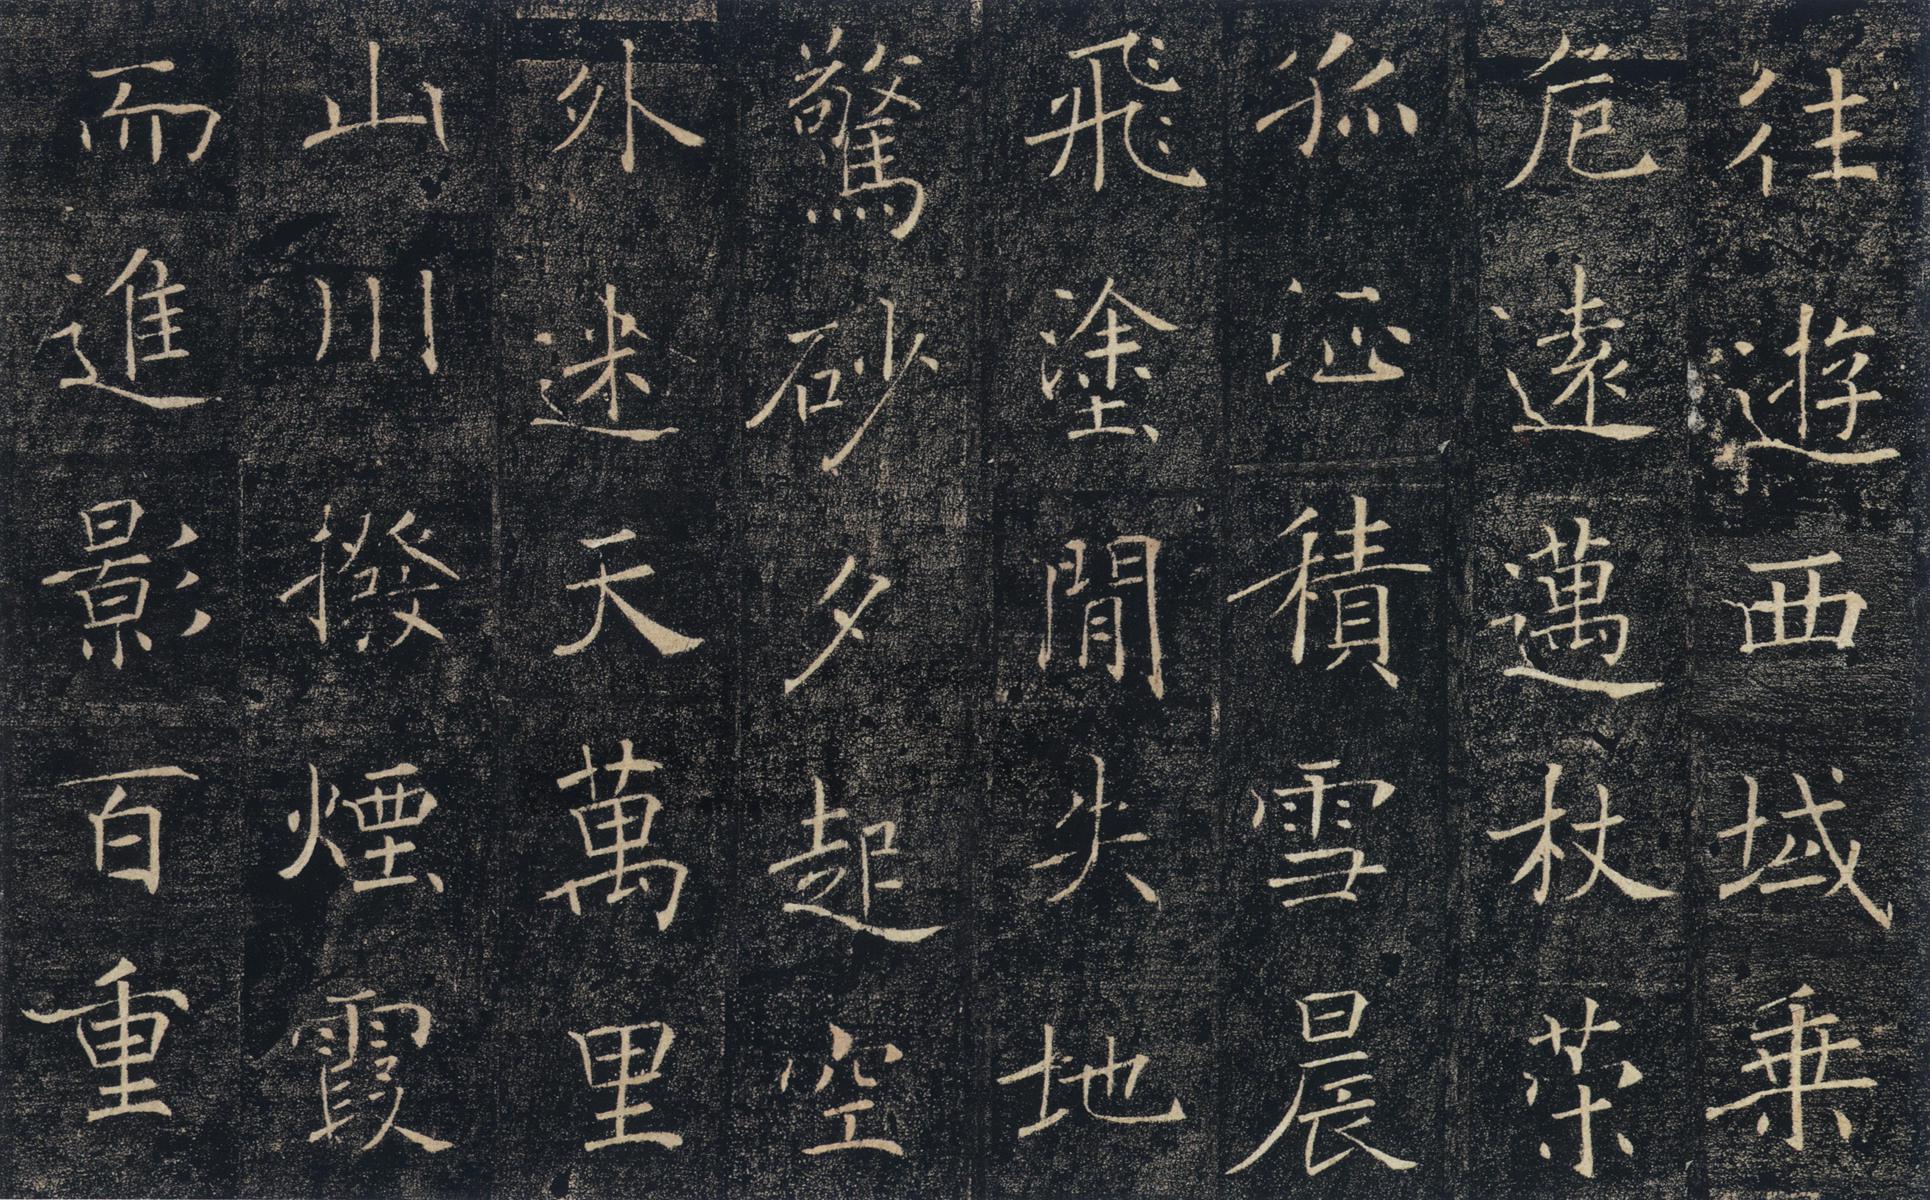 往遊西域乗
危遠邁杖策
孤征積雪晨
飛塗閒失地
驚砂夕起空
外迷天萬里
山川撥煙霞
而進影百重